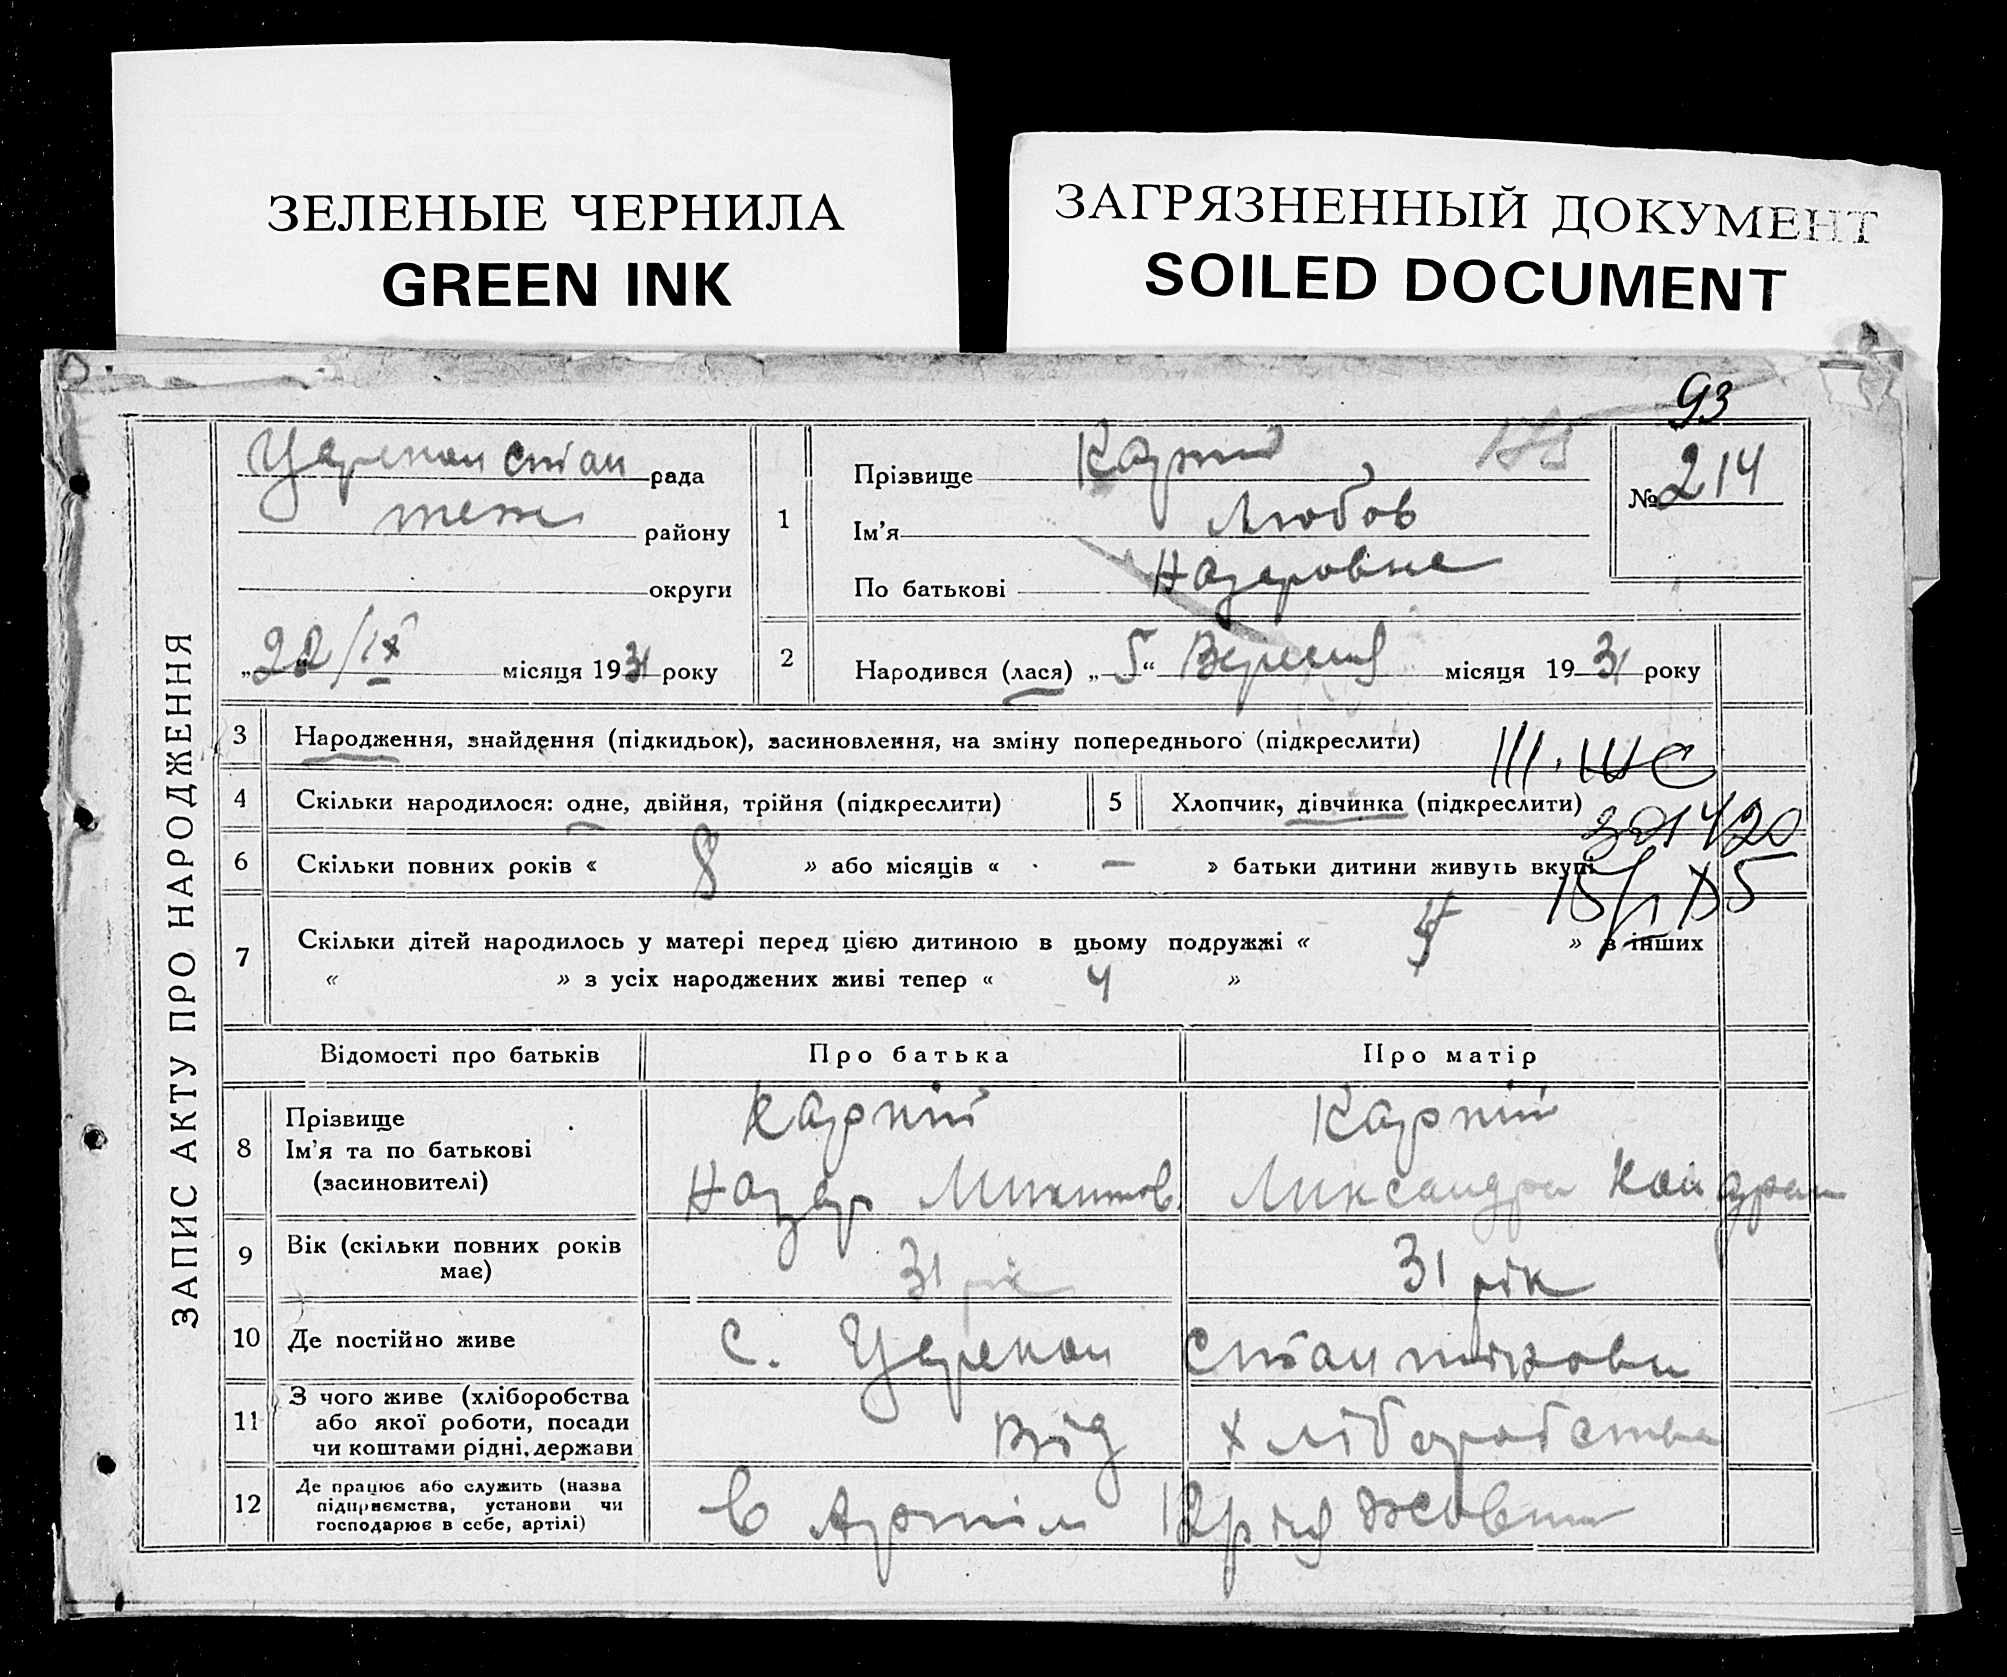 ЗЕЛЕНЫЕ ЧЕРНИЛА
GREEN INK
ЗАГРЯЗНЕННЫЙ ДОКУМЕНТ
SOILED DOCUMENT
93
ЗАПИС АКТУ ПРО НАРОДЖЕННЯ
рада
району
округи
„22/IX місяця 1931 року
1
Прізвище
Ім'я Любов
По батькові Назаровна
№ 214
2 Народився (лася) „5“ Вересня місяця 1931 року
3 Народження, знайдення (підкидьок), засиновлення, на зміну попереднього (підкреслити)
4 Скільки народилося: одне, двійня, трійня (підкреслити)
5 Хлопчик, дівчинка (підкреслити)
6 Скільки повних років « 8 » або місяців « — » батьки дитини живуть вкупі
7 Скільки дітей народилось у матері перед цією дитиною в цьому подружжі « » в інших
« » з усіх народжених живі тепер « 4 »
Відомості про батьків Про батька Про матір
8 Прізвище Карпій Карпій
Ім'я та по батькові
(засиновителі) Назар Микитов.
9 Вік (скільки повних років має) 31 рік 31 рік
10 Де постійно живе с.
11 З чого живе (хліборобства
або якої роботи, посади
чи коштами рідні, держави від хліборобства
12 Де працює або служить (назва
підприємства, установи чи
господарює в себе, артілі) в Артіл